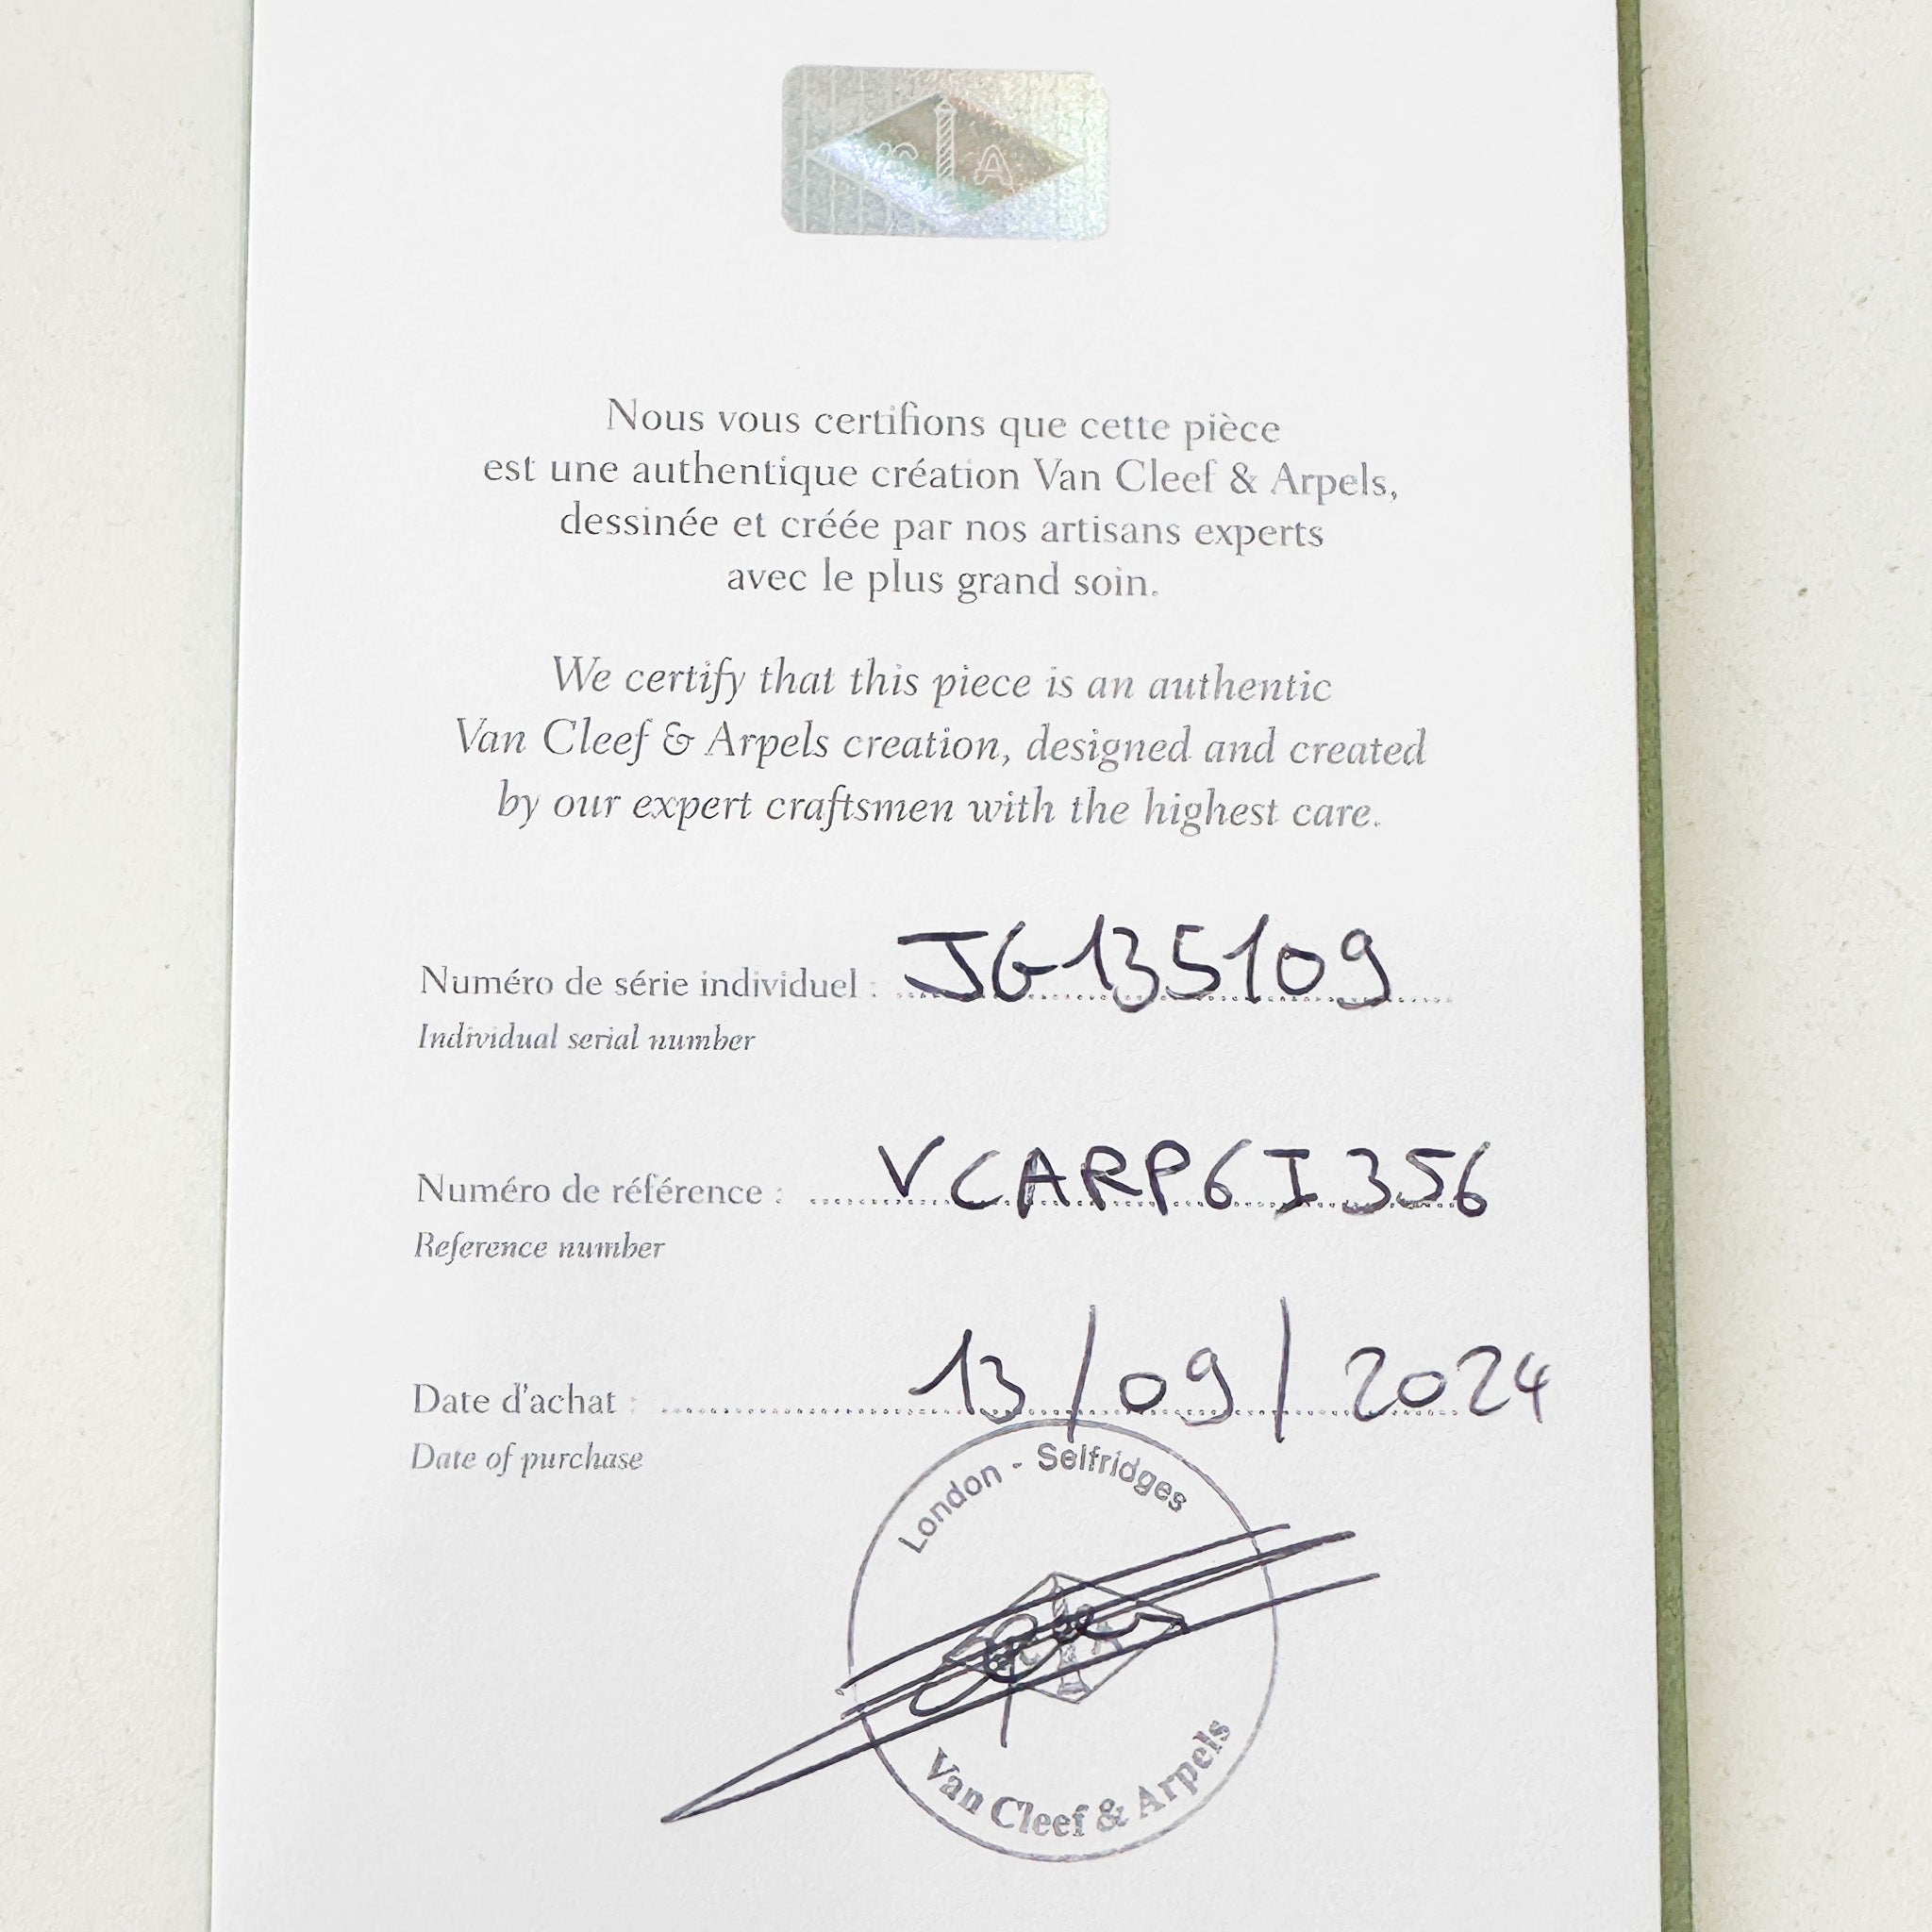 VC A
Nous vous certifions que cette pièce
est une authentique création Van Cleef & Arpels,
dessinée et créée par nos artisans experts
avec le plus grand soin.
We certify that this piece is an authentic
Van Cleef & Arpels creation, designed and created
by our expert craftsmen with the highest care.
Numéro de série individuel : JG135109
Individual serial number
Numéro de référence : VCARP6I356
Reference number
Date d'achat : 13/09/2024
Date of purchase
London - Selfridges
Van Cleef & Arpels